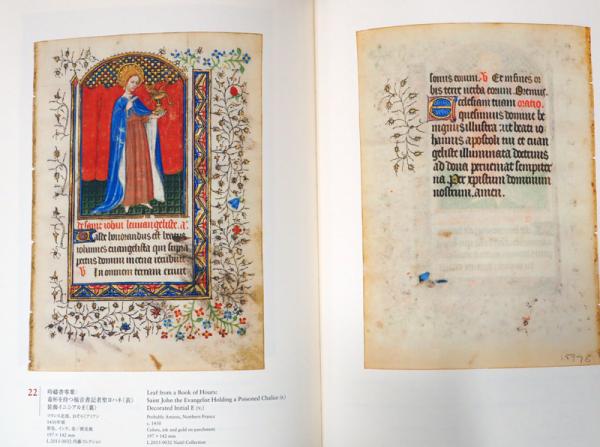 de saint iehan leuuangeliste. a.
Valde honorandus est beatus
iohannes euangelista qui supra
pectus domini in cena recubuit
V In omnem terram exiuit
sonus eorum. V Et in fines or
bis terre verba eorum. Oremus.
Ecclesiam tuam oratio.
quesumus domine be
nignus illustra: ut beati io
hannis apostoli tui et euan
geliste illuminata doctrinis
ad dona perueniat sempiter
na. Per xpistum dominum
nostrum. amen.
22
時祷書零葉:
毒杯を持つ福音書記者聖ヨハネ(表)
装飾イニシアルE(裏)
フランス北部、おそらくアミアン
1430年頃
彩色、インク、金/獣皮紙
197 × 142 mm
L.2015-0032 内藤コレクション
Leaf from a Book of Hours:
Saint John the Evangelist Holding a Poisoned Chalice (r.)
Decorated Initial E (v.)
Probably Amiens, Northern France
c. 1430
Colors, ink and gold on parchment
197 × 142 mm
L.2015-0032 Naitō Collection